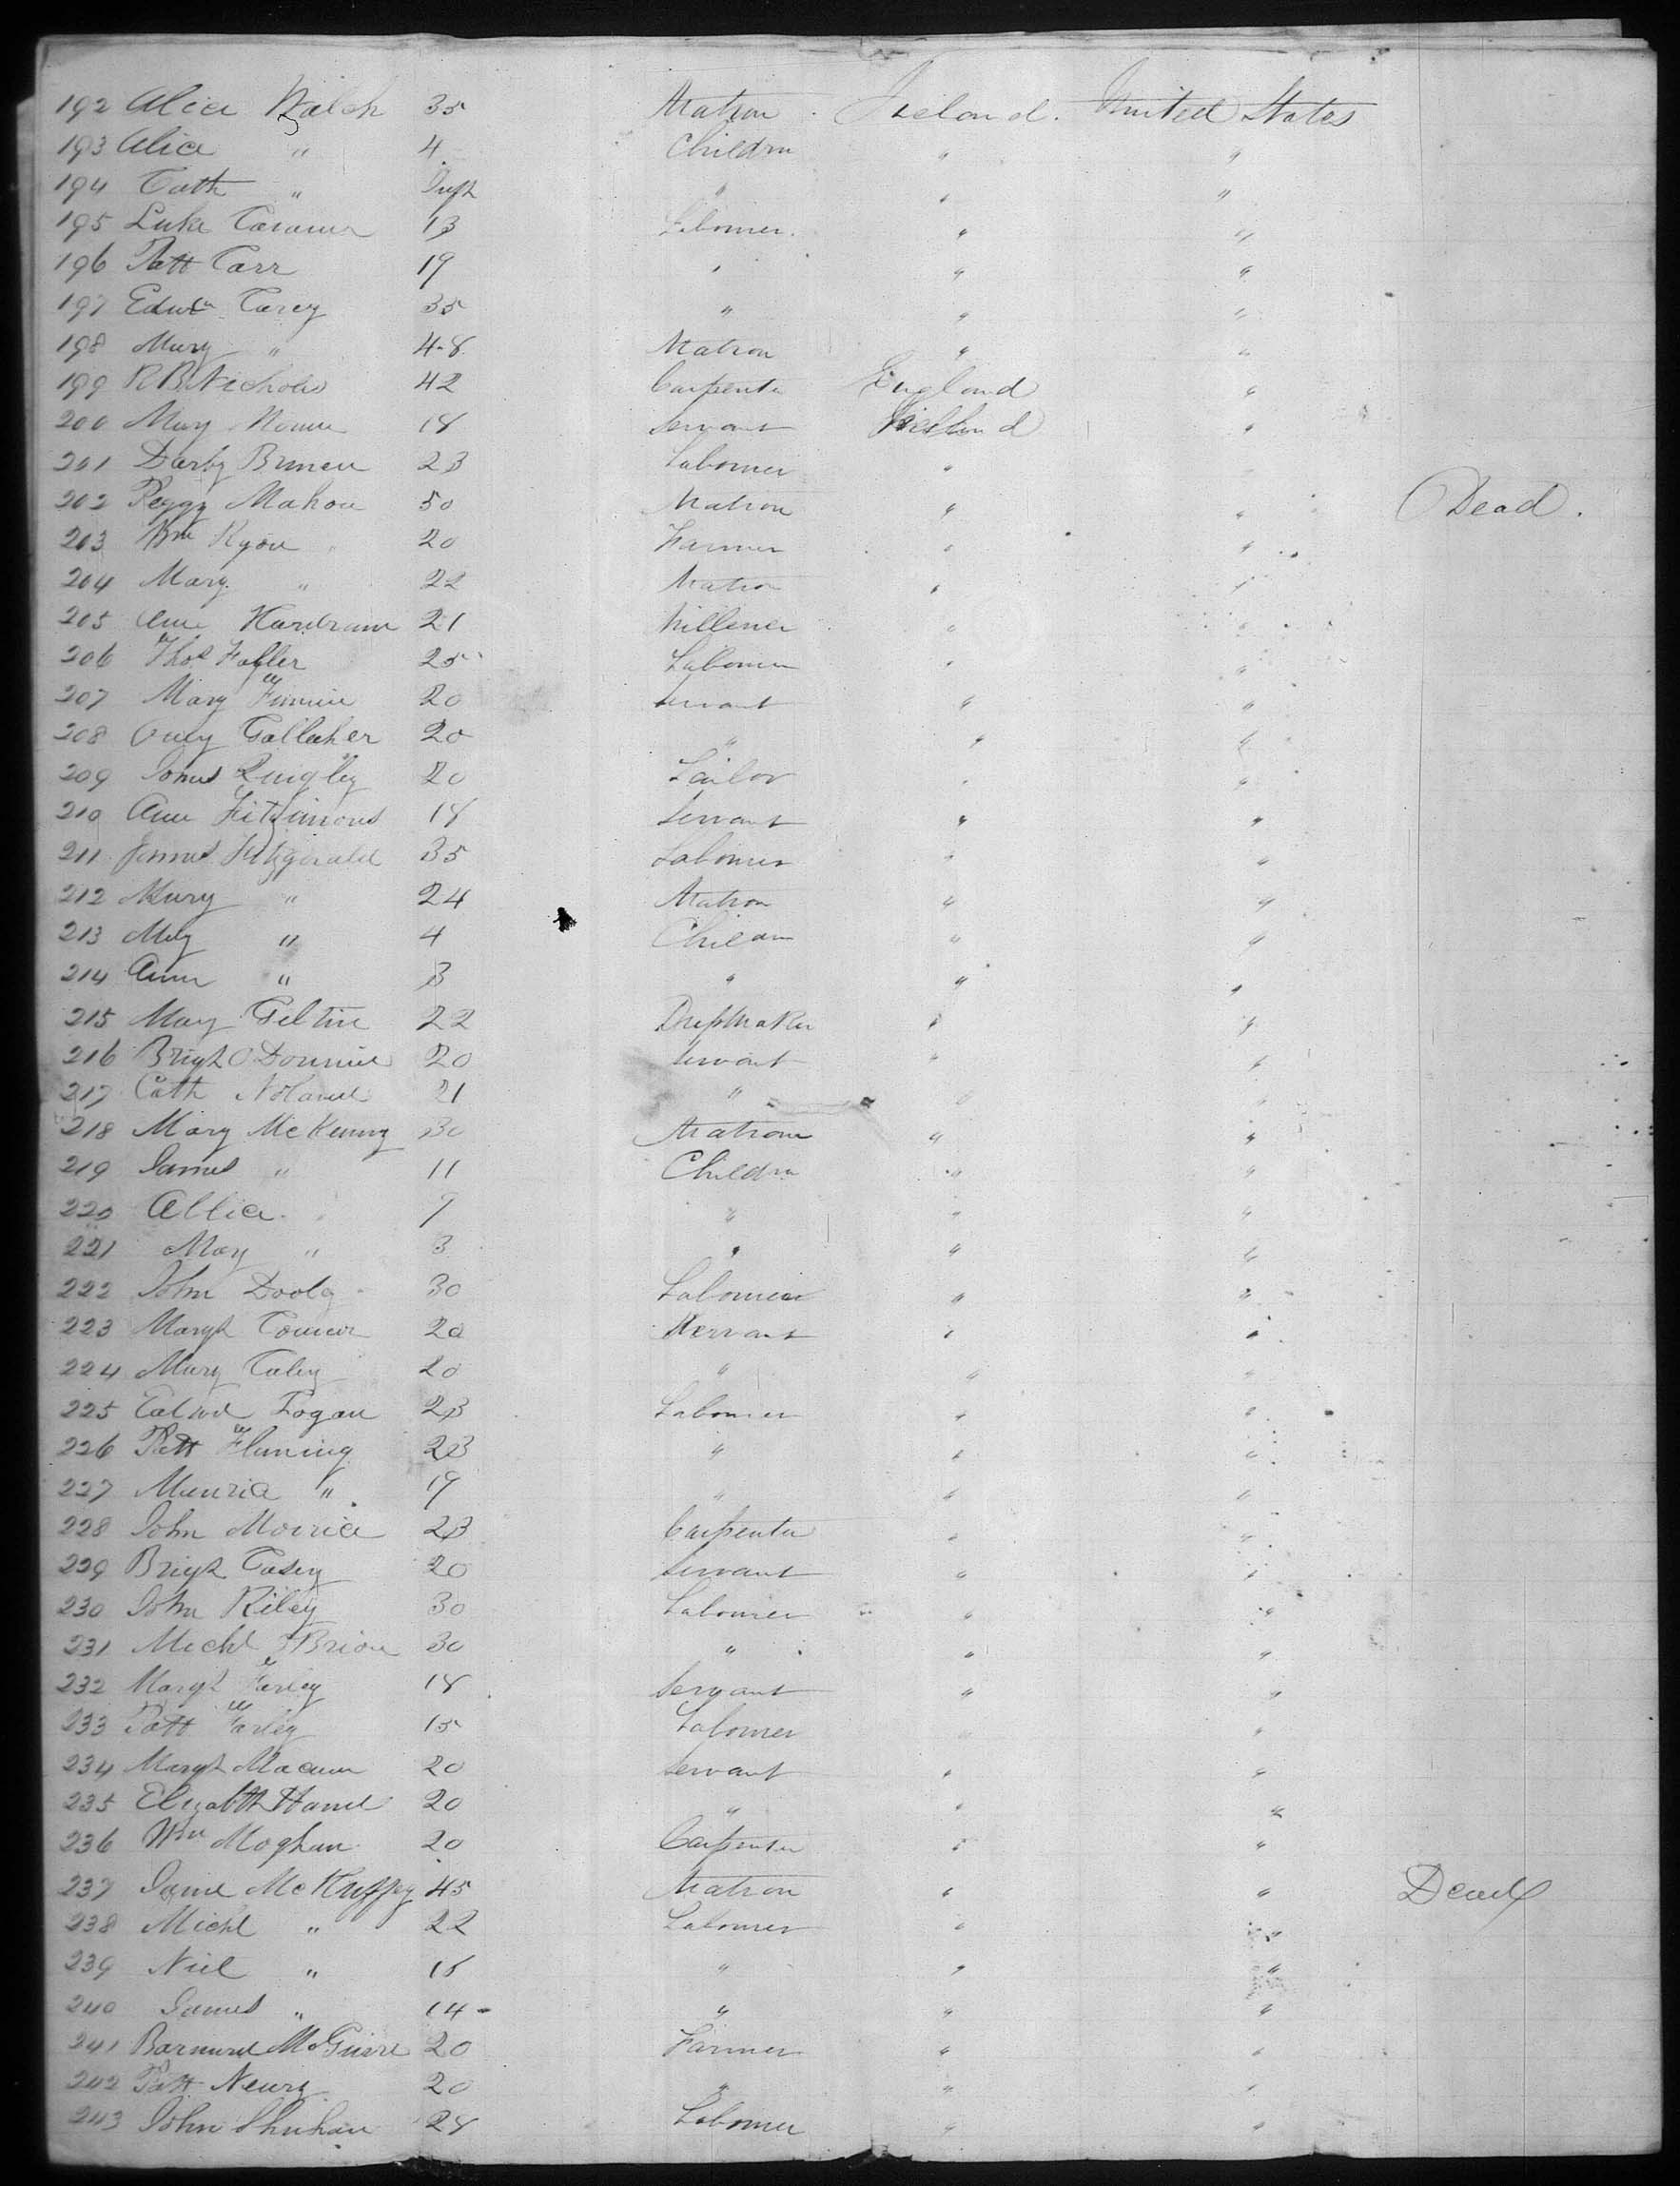 192 Alice Walch 35 Matron Ireland. United States
193 Alice " 4 Childrn " "
194 Cath " Inft " " "
195 Luke 13 Labourer. " "
196 Patt Carr 19 " " "
197 Edwd Carey 35 " " "
198 Mary " 48 Matron " "
199 R B Nicholis 42 Carpenter England "
200 Mary 18 Servant Ireland "
201 Darby 23 Labourer "
202 Peggy Mahon 50 Matron " " Dead.
203 Wm Ryan 20 Farmer " "
204 Mary " 22 Matron " "
205 Ann 21 Millener " "
206 Thos Faller 25 Labourer " "
207 Mary 20 Servant " "
208 Gallaher 20 " " "
209 James Quigley 20 Tailor " "
210 Ann Fitzimons 18 Servant " "
211 James Fitzgerald 35 Labourer " "
212 Mary " 24 Matron " "
213 " 4 Childrn " "
214 Ann " 3 " " "
215 May 22 DressMaker " "
216 Bright 20 Servant " "
217 Cath 21 " " "
218 Mary McKenny 30 Matron " "
219 James " 11 Childrn " "
220 Allice " 9 " " "
221 May " 3 " " "
222 John Doola 30 Labourer " "
223 Marght 20 Servant " "
224 Mary 20 " " "
225 Fogan 23 Labourer " "
226 Patt Fleming 23 " " "
227 " 19 " " "
228 John Morrice 23 Carpenter " "
229 Bright Casey 20 Servant " "
230 John Riley 30 Labourer " "
231 Michl OBrien 30 " " "
232 Marght Farley 18 Servant " "
233 Patt Farley 15 Labourer "
234 Marght 20 Servant " "
235 Elizabth 20 " " "
236 Wm Moghan 20 Carpenter " "
237 Jane 45 Matron " " Dead
238 Michl " 22 Labourer " "
239 Niel " " " "
240 James " 14 " " "
241 Barnard McGuire 20 Farmer " "
242 Patt Neury 20 " " "
243 John Shuhan 28 Labourer " "